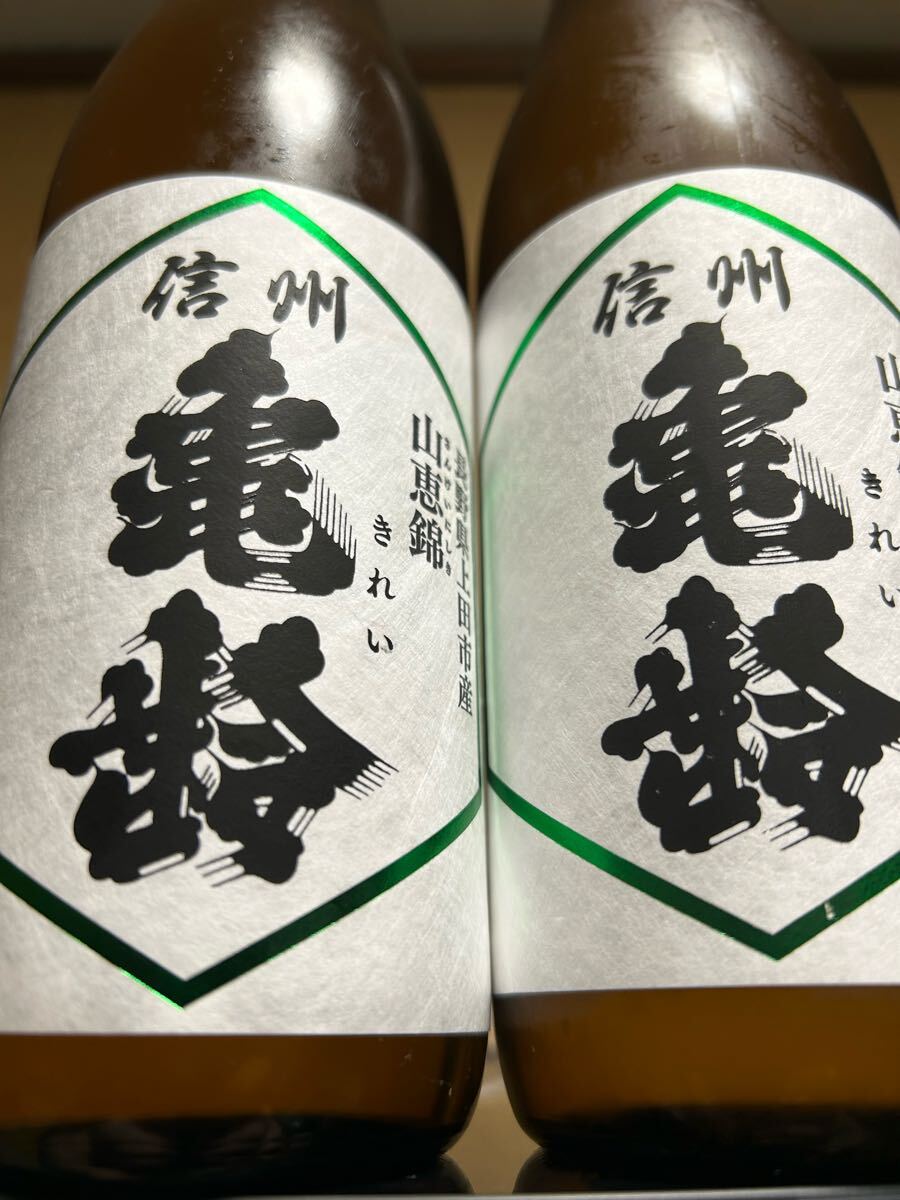 信州
亀齢
きれい
山恵錦
さんけいにしき
長野県上田市産
信州
亀齢
きれい
山恵